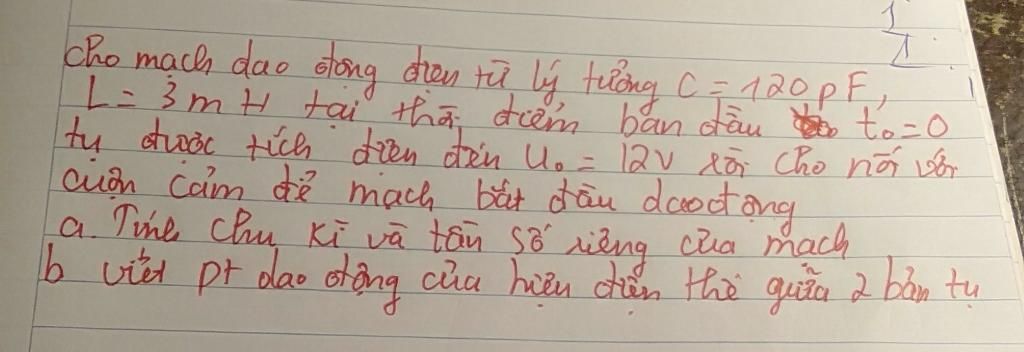 1
1.
Cho mạch dao động điện từ lý tưởng C = 120pF,
L = 3mH tại thời điểm ban đầu t₀=0
tụ được tích điện đến U₀ = 12V rồi cho nối với
cuộn cảm để mạch bắt đầu dao động
a. Tính chu kì và tần số riêng của mạch
b viết pt dao động của hiệu điện thế giữa 2 bản tụ